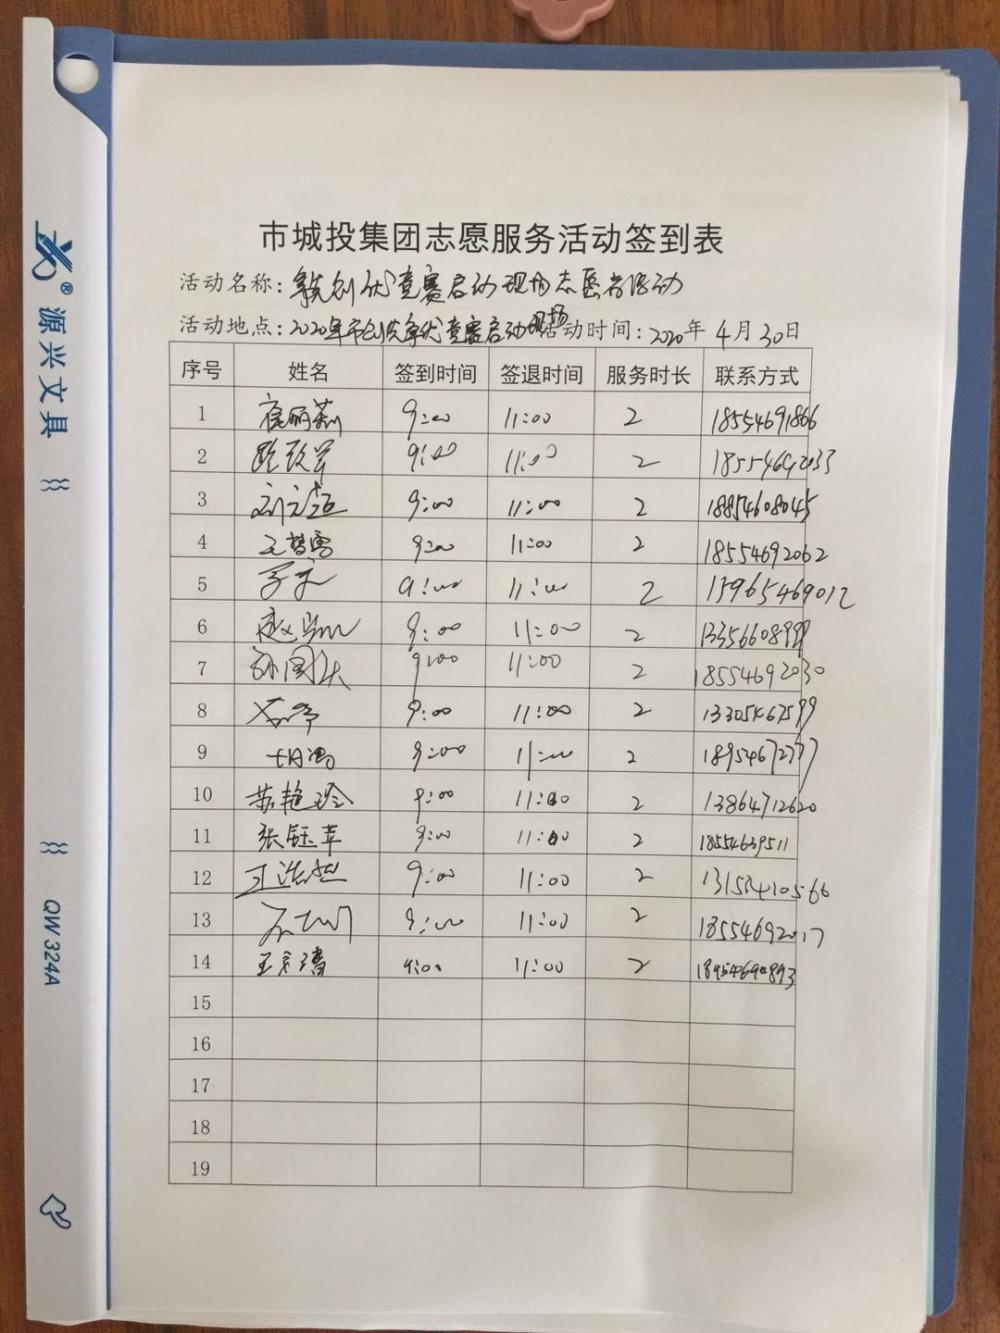 市城投集团志愿服务活动签到表
活动名称: 争创优竞赛启动现场志愿者活动
活动地点: 2020年市创先争优竞赛启动现场 活动时间: 2020年 4月30日
序号 姓名 签到时间 签退时间 服务时长 联系方式
1 9:00 11:00 2 18554691866
2 9:00 11:00 2 18554692033
3 9:00 11:00 2 18854608045
4 9:00 11:00 2 18554692062
5 9:00 11:00 2 15965469012
6 9:00 11:00 2
7 孙国庆 9:00 11:00 2 18554692030
8 9:00 11:00 2 13305467599
9 9:00 11:00 2
10 苏艳玲 9:00 11:00 2 13864712620
11 张钰苹 9:00 11:00 2 18554639511
12 王浩然 9:00 11:00 2 13153410566
13 9:00 11:00 2 18554692017
14 9:00 11:00 2 18954690893
15
16
17
18
19
源兴文具
QW 324A